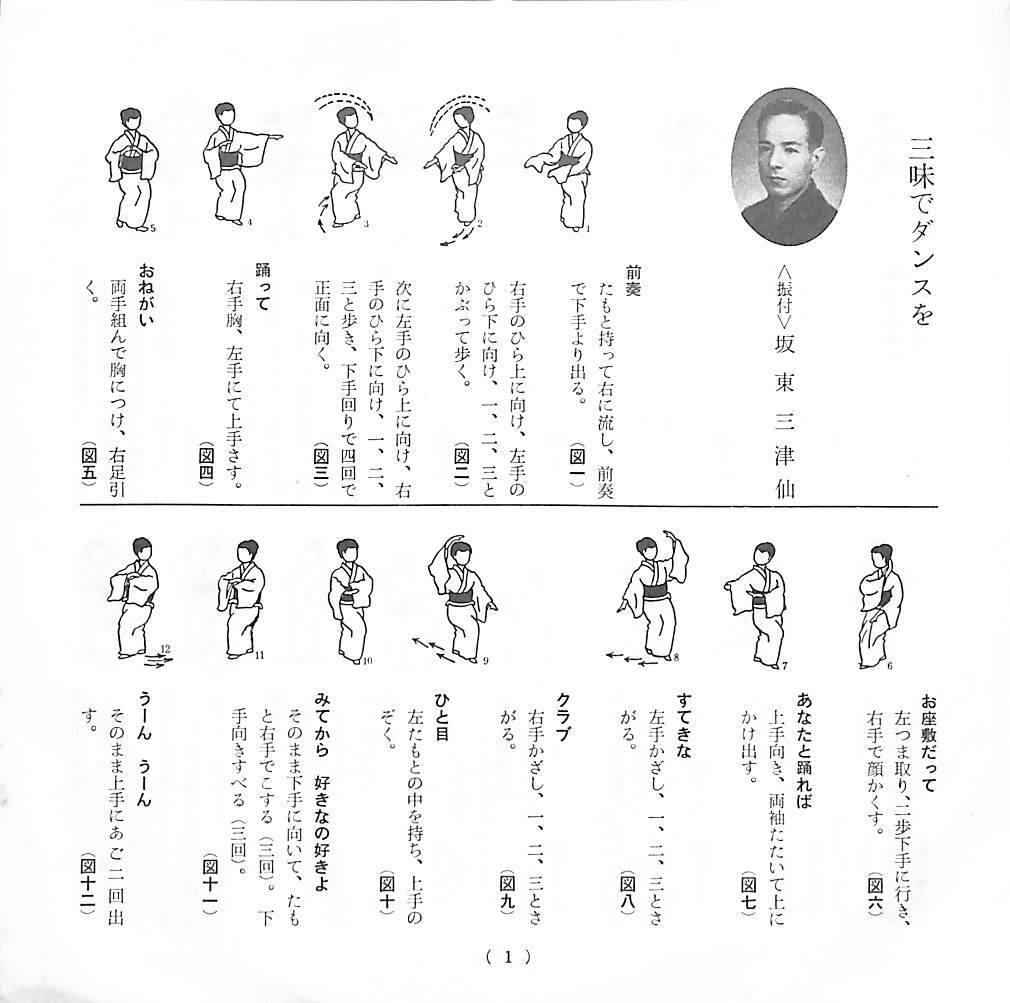 三味でダンスを
＜振付＞坂東三津仙
前奏
たもと持って右に流し、前奏
で下手より出る。
（図一）
右手のひら上に向け、左手の
ひら下に向け、一、二、三と
かぶって歩く。
（図二）
次に左手のひら上に向け、右
手のひら下に向け、一、二、
三と歩き、下手回りで四回で
正面に向く。
（図三）
踊って
右手胸、左手にて上手さす。
（図四）
おねがい
両手組んで胸につけ、右足引
く。
（図五）
1
2
3
4
5
お座敷だって
左つま取り、二歩下手に行き、
右手で顔かくす。
（図六）
あなたと踊れば
上手向き、両袖たたいて上に
かけ出す。
（図七）
すてきな
左手かざし、一、二、三とさ
がる。
（図八）
クラブ
右手かざし、一、二、三とさ
がる。
（図九）
ひと目
左たもとの中を持ち、上手の
ぞく。
（図十）
みてから　好きなの好きよ
そのまま下手に向いて、たも
と右手でこする（三回）。下
手向きすべる（三回）。
（図十一）
うーん　うーん
そのまま上手にあご二回出
す。
（図十二）
6
7
8
9
10
11
12
（1）